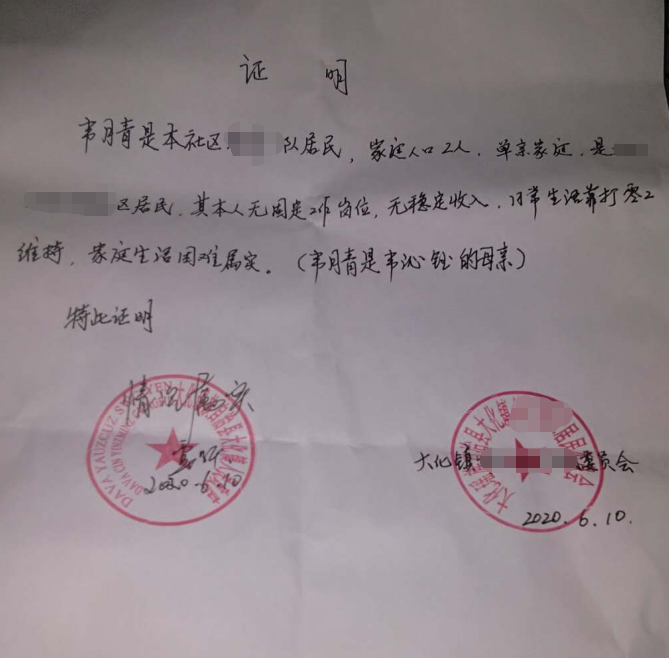 证 明
韦月青是本社区 队居民，家庭人口2人，单亲家庭，是
区居民，其本人无固定工作岗位，无稳定收入，日常生活靠打零工
维持，家庭生活困难属实。（韦月青是韦沁钰的母亲）
特此证明
情况属实
2020.6.10
大化镇 委员会
2020.6.10.